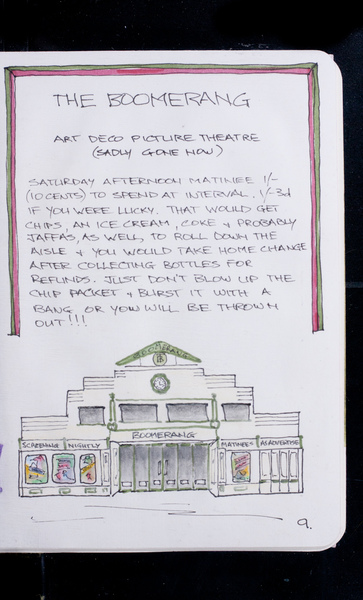 THE BOOMERANG
ART DECO PICTURE THEATRE
(SADLY GONE NOW)
SATURDAY AFTERNOON MATINEE 1/-
(10 CENTS) TO SPEND AT INTERVAL. 1/-3d
IF YOU WERE LUCKY. THAT WOULD GET
CHIPS, AN ICE CREAM, COKE & PROBABLY
JAFFAS, AS WELL, TO ROLL DOWN THE
AISLE & YOU WOULD TAKE HOME CHANGE
AFTER COLLECTING BOTTLES FOR
REFUNDS. JUST DON'T BLOW UP THE
CHIP PACKET & BURST IT WITH A
BANG OR YOU WILL BE THROWN
OUT!!!
BOOMERANG
B
BOOMERANG
SCREENING NIGHTLY MATINEES AS ADVERTISE
9.